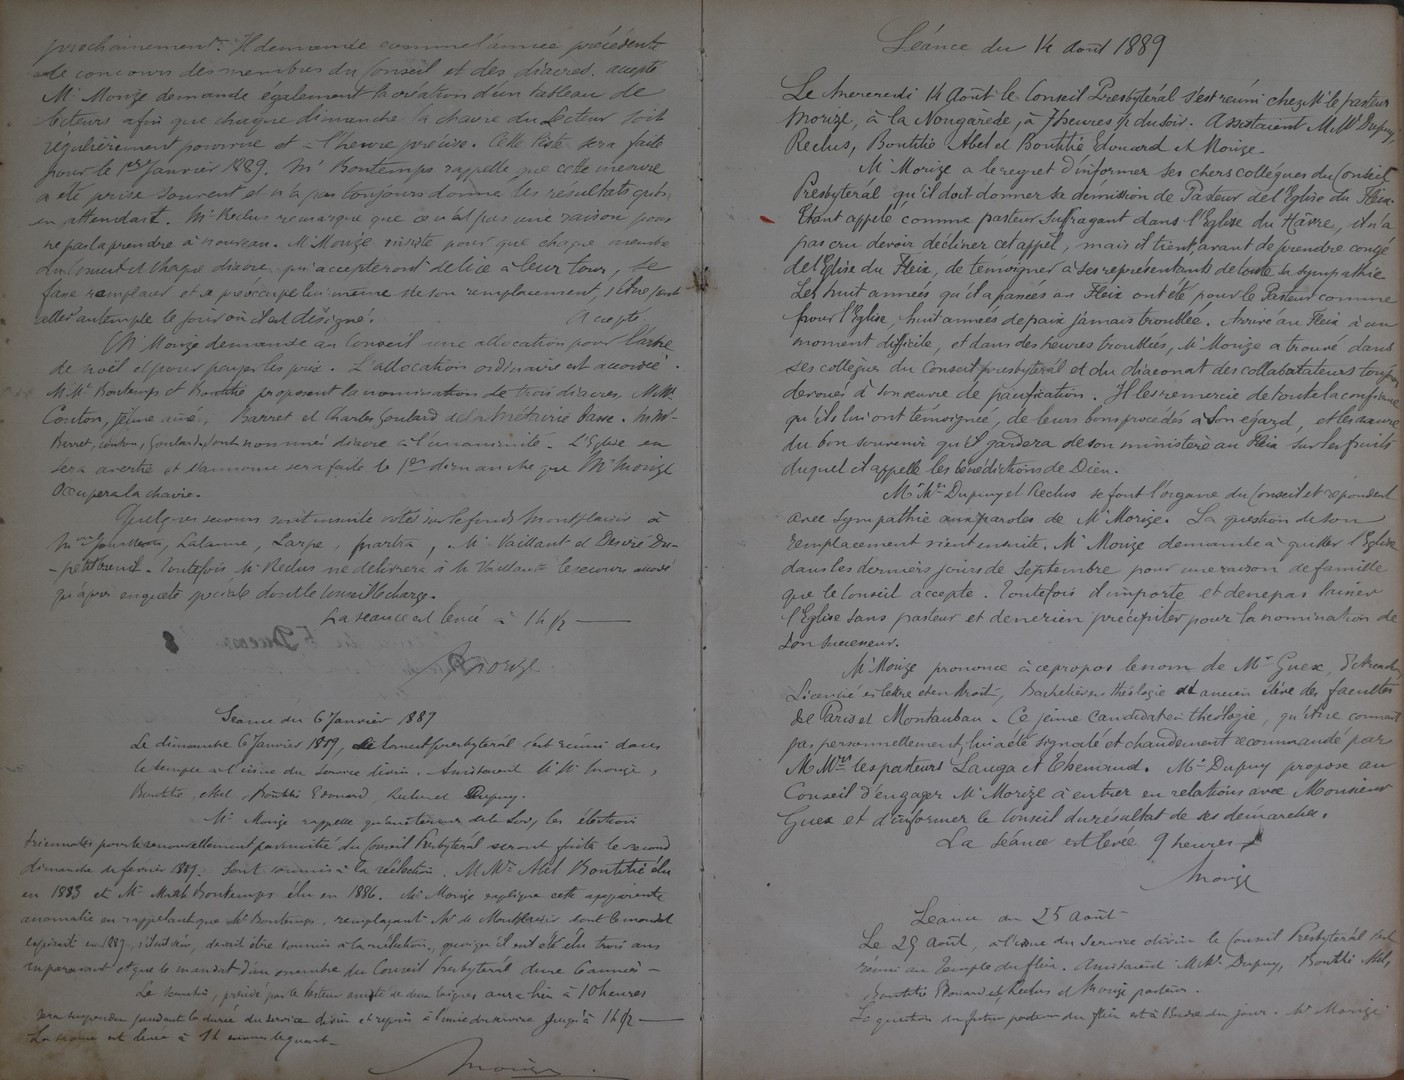 prochainement. Il demande comme l'année précédente
le concours des membres du Conseil et des diacres. accepté
Mr Morize demande également la création d'un tableau de
lecteurs afin que chaque dimanche la chaire du Lecteur soit
régulièrement pourvue et à l'heure précise. Cette liste sera faite
pour le 1er Janvier 1889. Mr Bontemps rappelle que cette mesure
a été prise souvent et n'a pas toujours donné les résultats qu'on
en attendait. Mr Reclus remarque que ce n'est pas une raison pour
ne pas la prendre à nouveau. Mr Morize insiste pour que chaque membre
du Conseil et chaque diacre qui accepteront de lire à leur tour, se
fasse remplacer et se préoccupe lui-même de son remplacement, s'il ne peut
aller au temple le jour où il est désigné. Accepté
Mr Morize demande au Conseil une allocation pour l'arbre
de noël et pour payer les prix. L'allocation ordinaire est accordée.
M Mrs Bontemps et Bontitié proposent la nomination de trois diacres, M Mrs
Couton, jeune ainé, Barret et Charles Goulard de la Métairie Basse. M Mrs
Barret, Couton, Goulard, sont nommés diacre à l'unanimité. L'Eglise en
sera avertie et l'annonce sera faite le 1er dimanche que Mr Morize
occupera la chaire.
Quelques secours sont ensuite votés sur le fonds Montplaisir à
Lalanne, Larpe, Mr Vaillant et Desiré Du-
-petit breuil. Toutefois Mr Reclus ne délivrera à Mr Vaillant le secours accordé
qu'après enquête spéciale dont le Conseil le charge.
La séance est levée à 1 h 1/2
Morize
Séance du 6 Janvier 1889
Le dimanche 6 Janvier 1889, le Conseil presbytéral s'est réuni dans
le temple à l'issue du service divin. Assistaient M Mrs Morize,
Bontitié Abel, Bontitié Edouard, Reclus et Dupuy.
Mr Morize rappelle qu'aux termes de la Loi, les élections
triennales pour le renouvellement par moitié du Conseil Presbytéral seront faites le second
dimanche de février 1889. Sont soumis à la réélection M Mrs Abel Bontitié élu
en 1883 et Mr Bontemps élu en 1886. Mr Morize explique cette apparente
anomalie en rappelant que Mr Bontemps, remplaçant Mr de Montplaisir dont le mandat
expirait en 1889, devait être soumis à la réélection, quoiqu'il eut été élu trois ans
auparavant et que le mandat d'un membre du Conseil Presbytéral dure 6 années
Le scrutin, présidé par le Pasteur assisté de deux laïques aura lieu à 10 heures
sera suspendu pendant la durée du service divin et repris à l'issue du service jusqu'à 1 h 1/2
La séance est levée à 1 h moins le quart
Morize
Séance du 14 août 1889
Le Mercredi 14 Août le Conseil Presbytéral s'est réuni chez Mr le pasteur
Morize, à la Nougarède, à 7 heures 1/2 du soir. Assistaient M Mrs Dupuy,
Reclus, Bontitié Abel et Bontitié Edouard et Morize.
Mr Morize a le regret d'informer ses chers collègues du Conseil
Presbytéral qu'il doit donner sa démission de Pasteur de l'Eglise du Fleix.
Etant appelé comme pasteur suffragant dans l'Eglise du Hâvre, il n'a
pas cru devoir décliner cet appel, mais il tient, avant de prendre congé
de l'Eglise du Fleix, de témoigner à ses représentants de toute sa sympathie
Les huit années qu'il a passées au Fleix ont été, pour le Pasteur comme
pour l'Eglise, huit années de paix jamais troublée. Arrivé au Fleix à un
moment difficile, et dans des heures troublées, Mr Morize a trouvé dans
ses collègues du Conseil presbytéral et du diaconat des collaborateurs toujours
dévoués à son œuvre de pacification. Il les remercie de toute la confiance
qu'ils lui ont témoignée, de leurs bons procédés à son égard, et les assure
du bon souvenir qu'il gardera de son ministère au Fleix sur les fruits
duquel il appelle les bénédictions de Dieu.
M Mrs Dupuy et Reclus se font l'organe du Conseil et répondent
avec sympathie aux paroles de Mr Morize. La question de son
remplacement vient ensuite. Mr Morize demande à quitter l'Eglise
dans les derniers jours de Septembre pour une raison de famille
que le Conseil accepte. Toutefois il importe et de ne pas laisser
l'Eglise sans pasteur et de ne rien précipiter pour la nomination de
son successeur.
Mr Morize prononce à ce propos le nom de Mr Guex,
Licencié ès lettre et en droit, Bachelier en théologie et ancien élève des facultés
de Paris et Montauban. Ce jeune candidat en théologie, qu'il ne connait
pas personnellement, lui a été signalé et chaudement recommandé par
M Mrs les pasteurs Lauga et Thenaud. Mr Dupuy propose au
Conseil d'engager Mr Morize à entrer en relations avec Monsieur
Guex et d'informer le Conseil du résultat de ses démarches.
La séance est levée 9 heures
Morize
Séance du 25 août
Le 25 août, à l'issue du service divin le Conseil Presbytéral s'est
réuni au Temple du fleix. Assistaient M Mrs Dupuy, Bontitié Abel,
Bontitié Edouard et Reclus et Morize pasteur.
La question du futur pasteur du fleix est à l'ordre du jour. Mr Morize